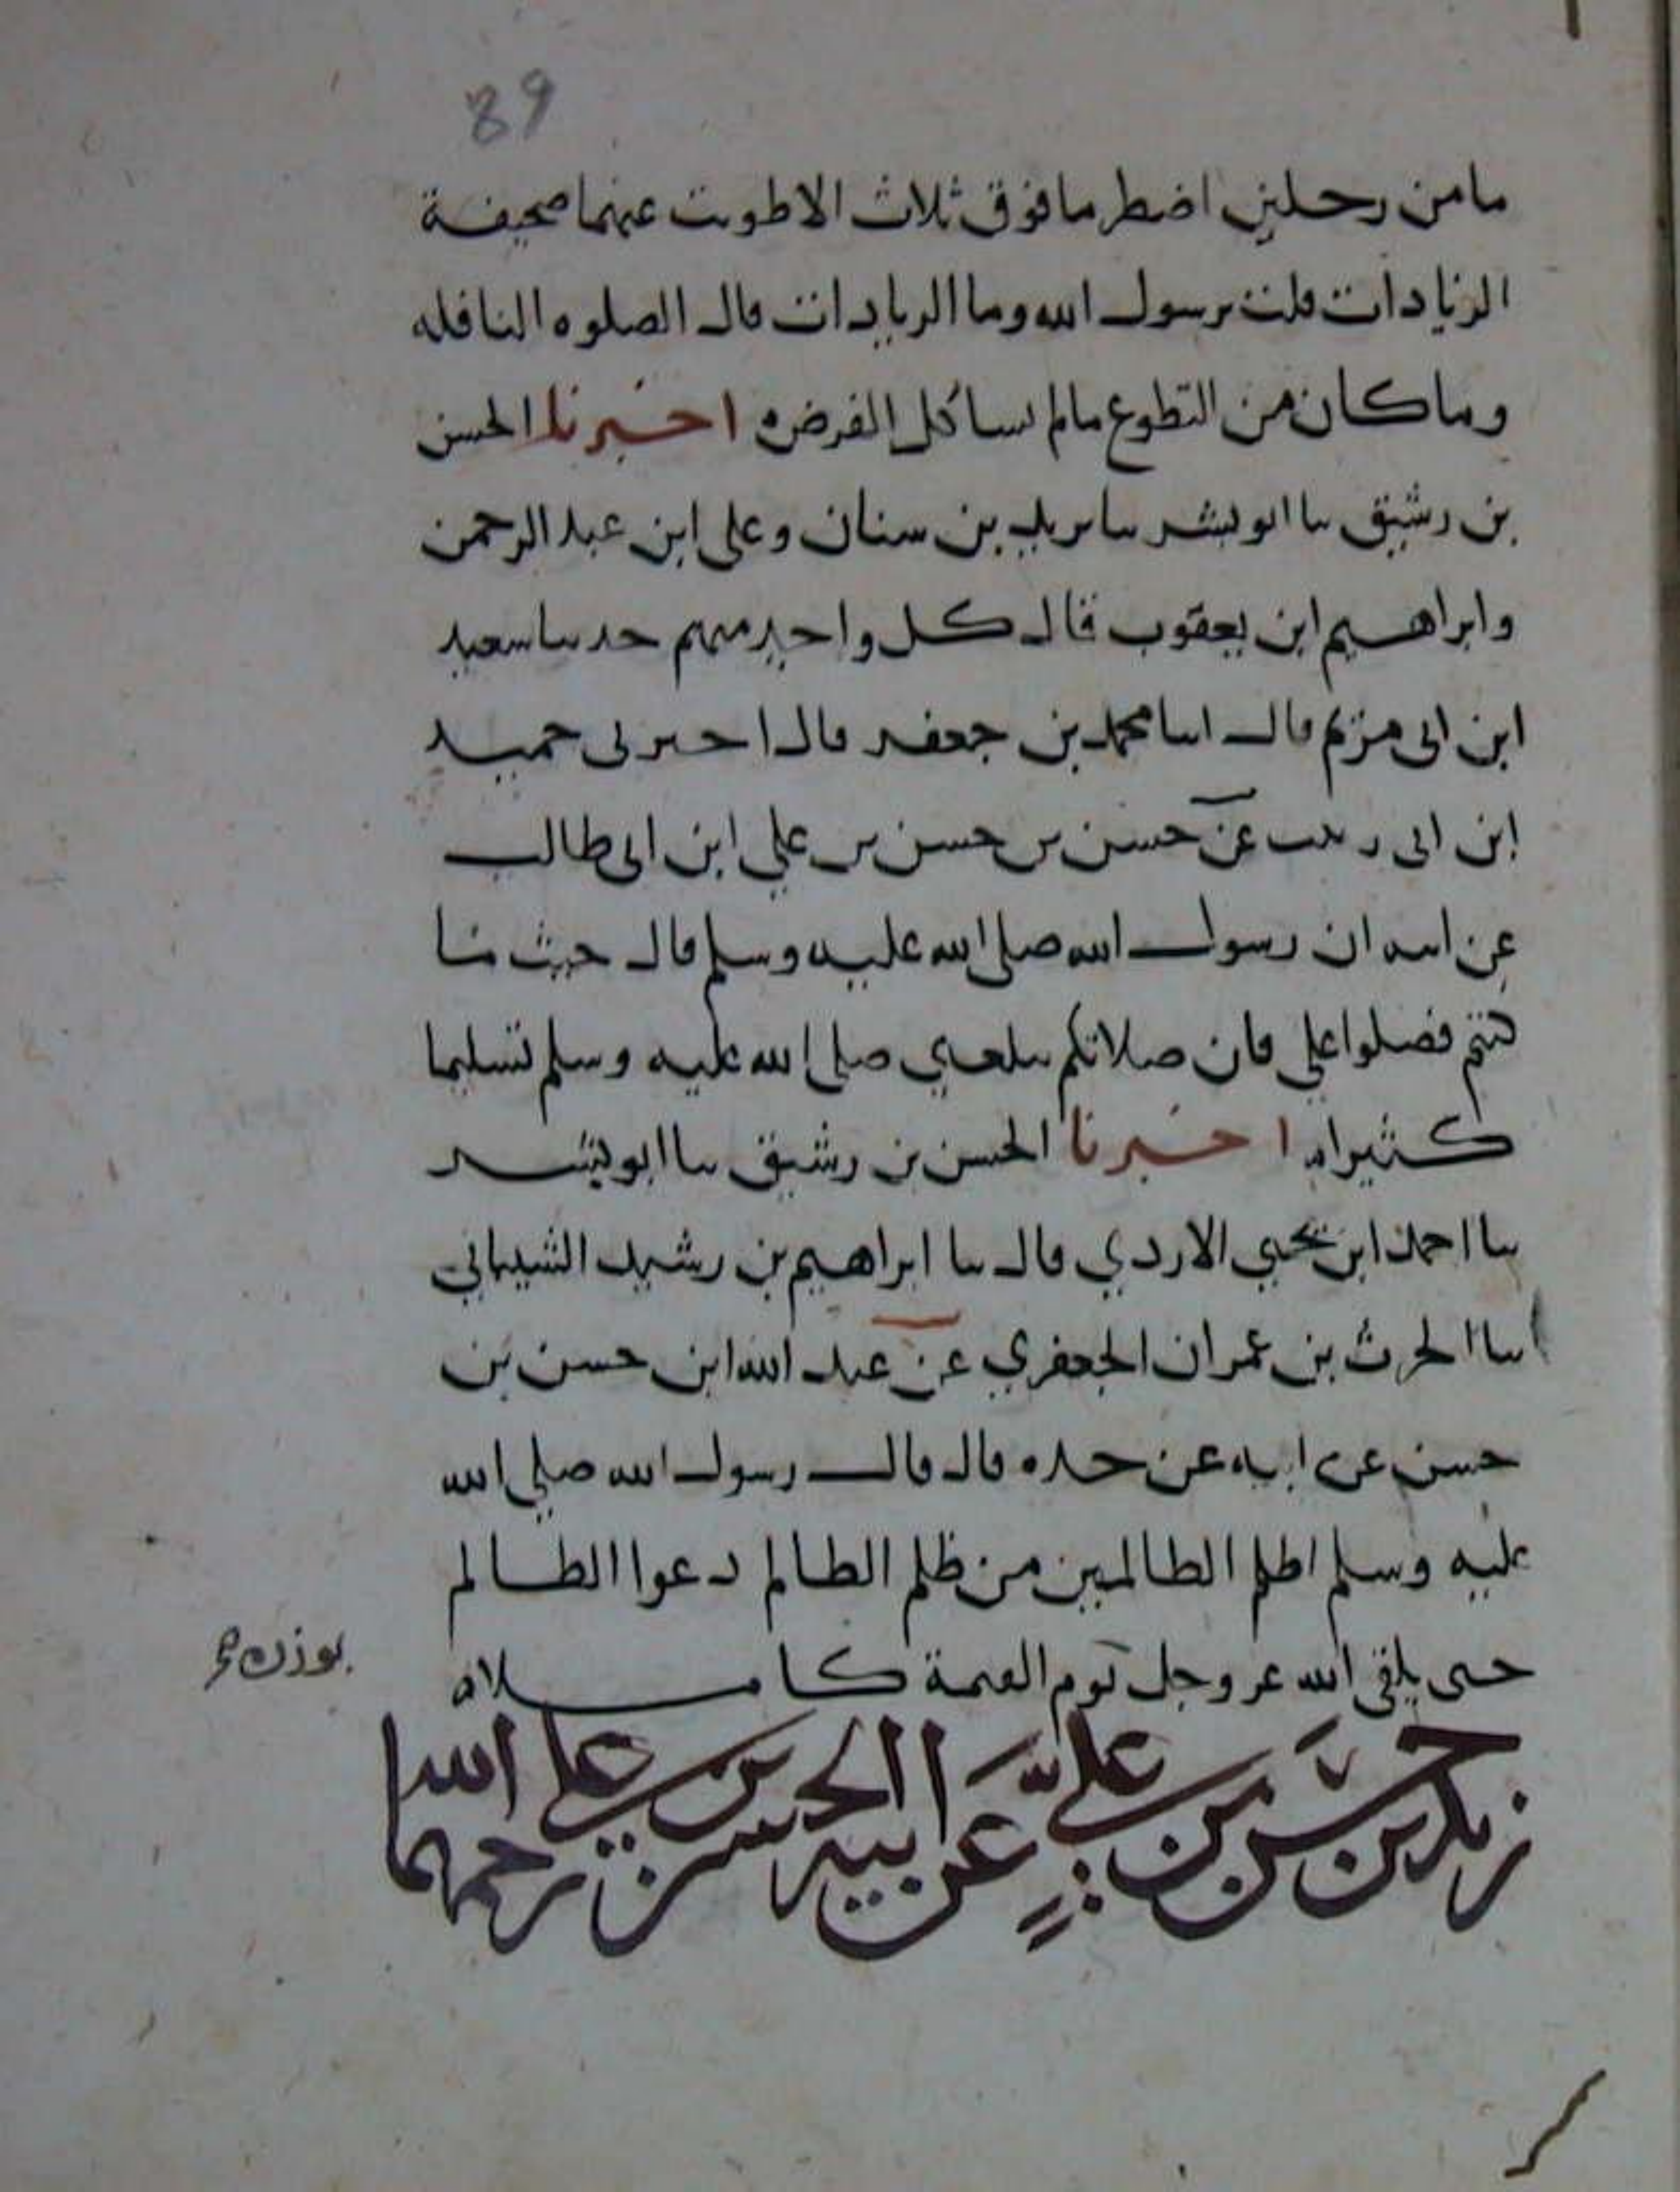 89
ما من رجلين اضطرما فوق ثلاث الا طويت عنهما صحيفة
الزيادات قلت يرسول الله وما الزيادات قال الصلوه النافله
وما كان من التطوع مالم الفرض اخبرنا الحسن
بن رشيق نا ابو بشر نا يزيد بن سنان وعلي ابن عبد الرحمن
وابراهيم ابن يعقوب قال كل واحد منهم حدثنا سعيد
ابن ابي مريم قال انا محمد بن جعفر قال اخبرني حميد
ابن ابي زينب عن حسن بن حسن بن علي ابن ابي طالب
عن ابيه ان رسول الله صلى الله عليه وسلم قال حيث ما
كنتم فصلوا علي فان صلاتكم تبلغني صلى الله عليه وسلم تسليما
كثيرا اخبرنا الحسن بن رشيق نا ابو بشر
نا احمد ابن يحيى الازدي قال نا ابراهيم بن رشيد الشيباني
نا الحرث بن عمران الجعفري عن عبد الله ابن حسن بن
حسن عن ابيه عن جده قال قال رسول الله صلى الله
عليه وسلم اظلم الظالمين من ظلم الظالم دعوا الظالم
حتى يلقى الله عز وجل يوم القيمة كاملا
زيد بن حسن بن علي عن ابيه الحسن بن علي رحمهما الله